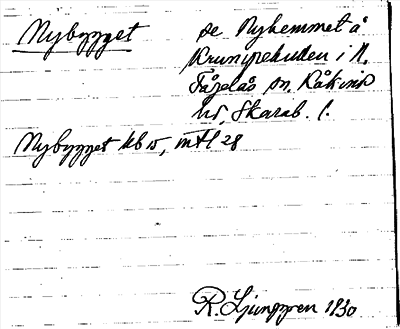 Nybygget
se Nyhemmet å
Krumpekullen i N.
Fågelås sn, Kåkinds
hd, Skarab. l.
Nybygget kb 15, mtl 28
R. Ljunggren 1930